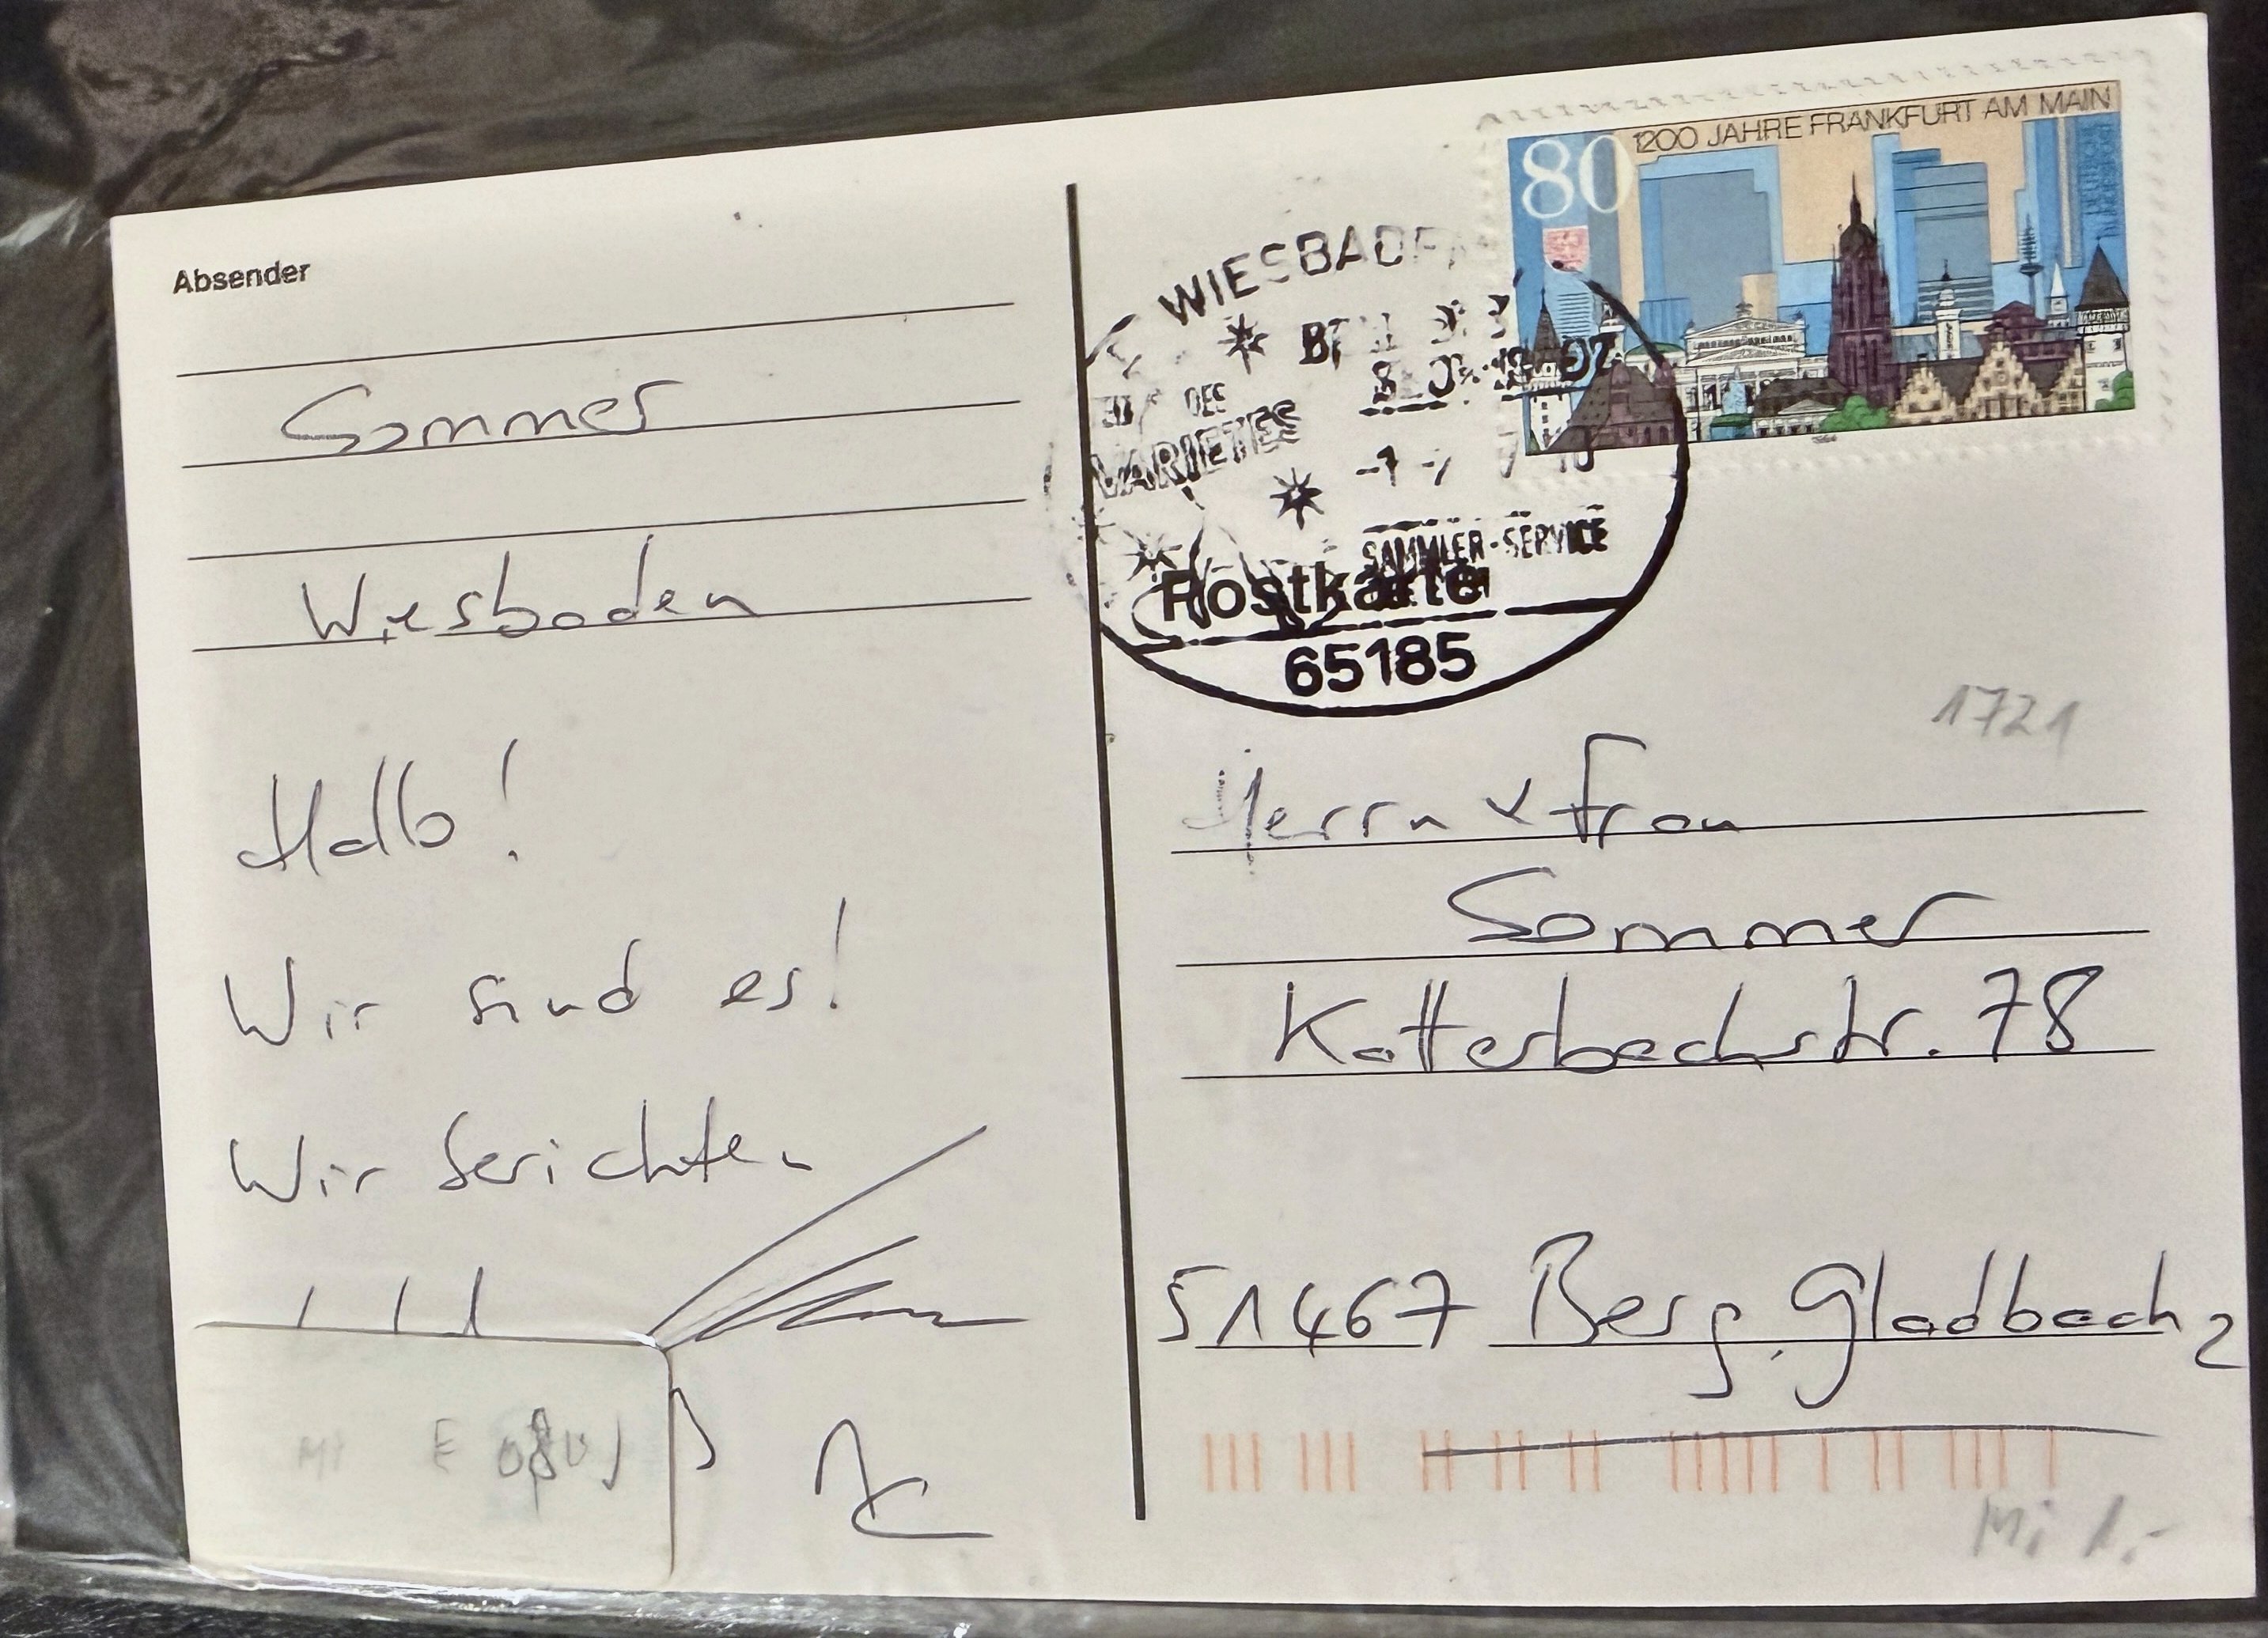 Absender
Sommer
Wiesbaden
Hallo!
Wir sind es!
Wir berichten
80
1200 JAHRE FRANKFURT AM MAIN
WIESBADE
DES
VARIETES
SAMMLER-SERVICE
Postkarte
65185
1721
Herrn & Frau
Sommer
Katterbachstr. 78
51467 Berg. Gladbach 2
Mi 1.-